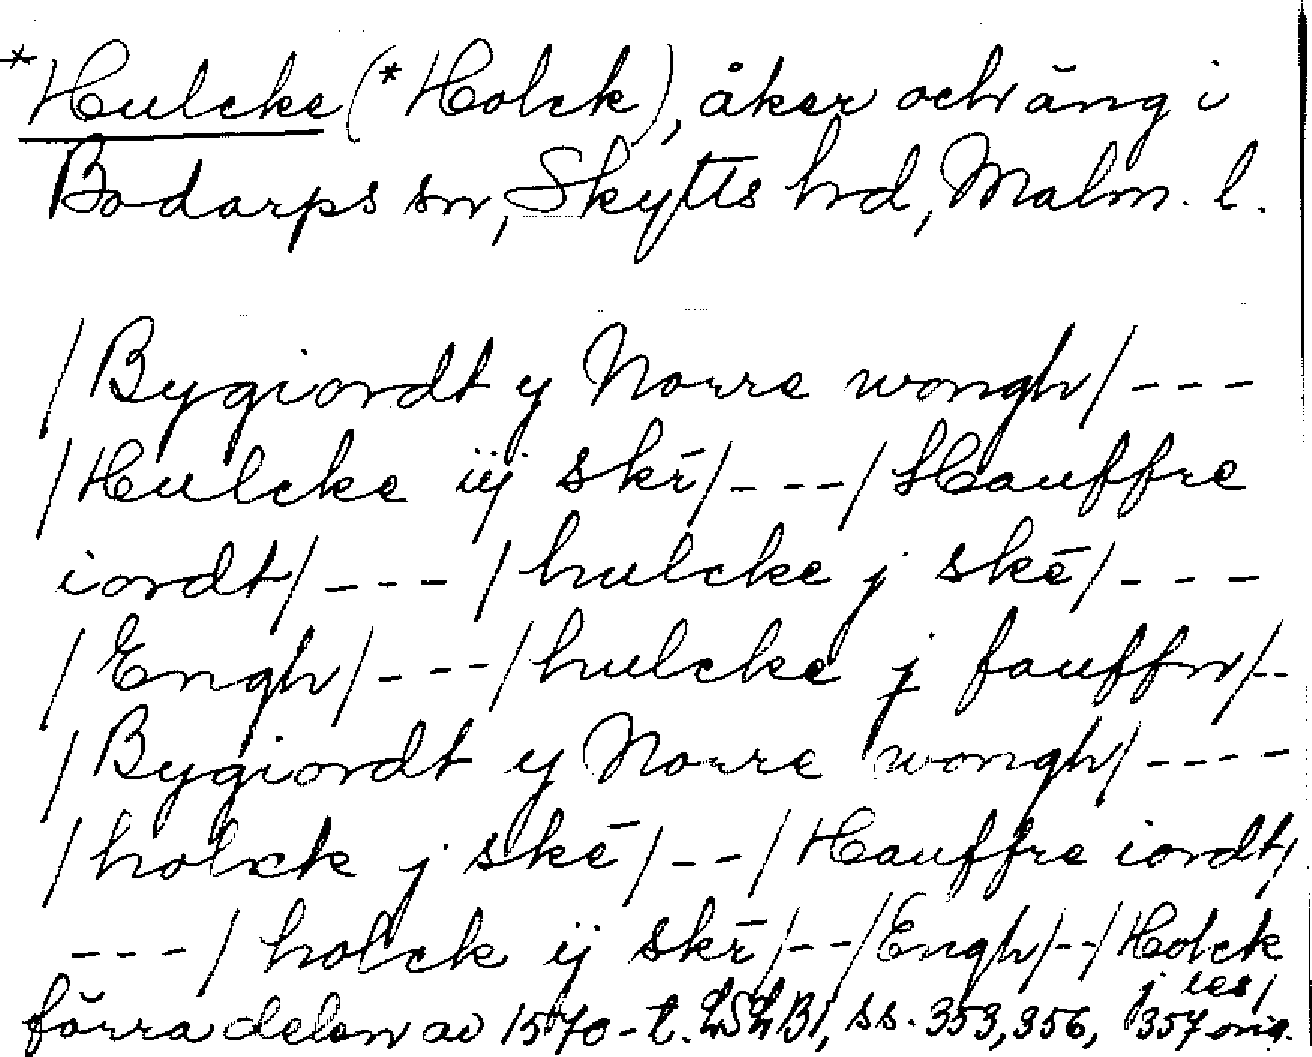 *Hulcke (*Holck), åker och äng i
Bodarps sn, Skytts hd, Malm. l.
/Bygiordt y Norre wongh/ ---
/Hulcke iij skr̄/ --- /Hauffre
iordt/ --- /hulcke j skē/ ---
/Engh/ --- /hulcke j fauffn/--
/Bygiordt y Norre wongh/ ----
/holck j skē/ -- /Hauffre iordt/
--- /holck ij skr̄/--/Engh/--/Holck
j les/
förra delen av 1570-t. LSLB1, ss. 353, 356, 357 orig.